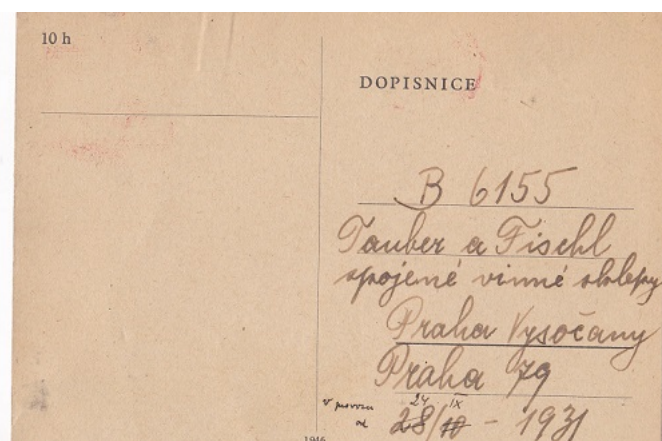 10 h
DOPISNICE
B 6155
Tauber a Fischl
spojené vinné sklepy
Praha Vysočany
Praha 79
24 IX
v provozu
od 28/10 - 1931
1946